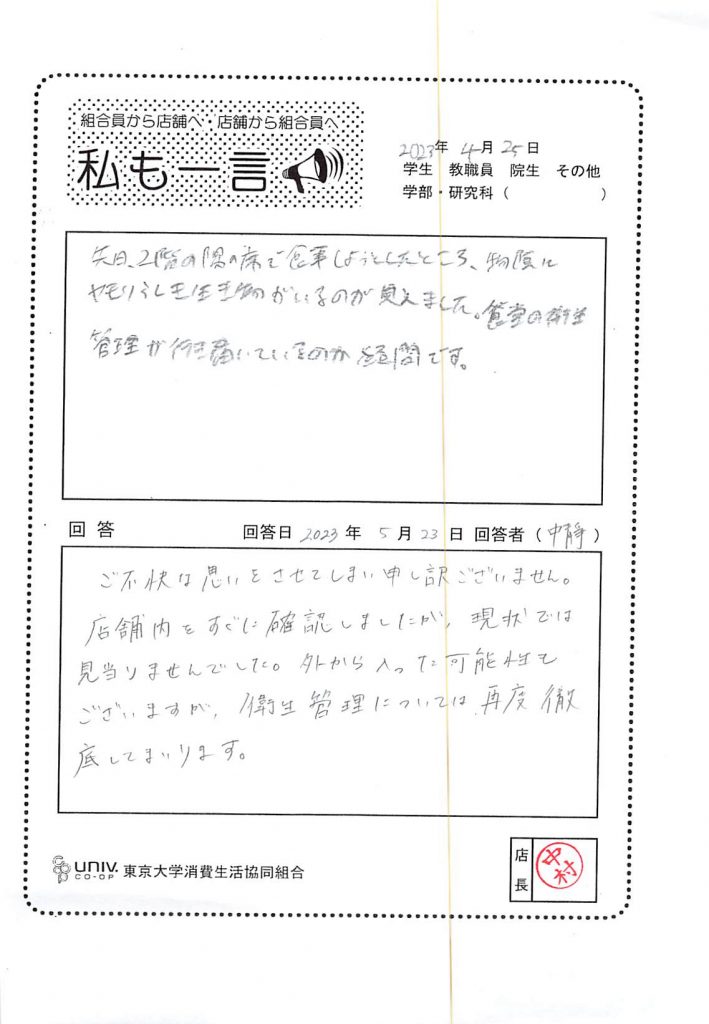 組合員から店舗へ 店舗から組合員へ
私も一言
2023年 4月 25日
学生 教職員 院生 その他
学部・研究科( )
先日、2階の隅の席で食事しようとしたところ、物陰に
ヤモリらしき生き物がいるのが見えました。食堂の衛生
管理が行き届いているのか疑問です。
回答 回答日 2023 年 5 月 23 日 回答者(中静)
ご不快な思いをさせてしまい申し訳ございません。
店舗内をすぐに確認しましたが、現状では
見当りませんでした。外から入った可能性も
ございますが、衛生管理については再度徹
底してまいります。
UNIV. CO-OP 東京大学消費生活協同組合
店長 中村